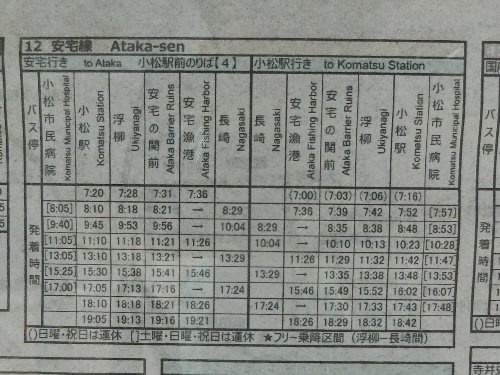 12 安宅線 Ataka-sen
安宅行き to Ataka 小松駅前のりば【4】 小松駅行き to Komatsu Station
バス停 小松市民病院 Komatsu Municipal Hospital 小松駅 Komatsu Station 浮柳 Ukiyanagi 安宅の関前 Ataka Barrier Ruins 安宅漁港 Ataka Fishing Harbor 長崎 Nagasaki 長崎 Nagasaki 安宅漁港 Ataka Fishing Harbor 安宅の関前 Ataka Barrier Ruins 浮柳 Ukiyanagi 小松駅 Komatsu Station 小松市民病院 Komatsu Municipal Hospital バス停
発着時間 発着時間
7:20 7:28 7:31 7:36 (7:00) (7:03) (7:06) (7:16)
[8:05] 8:10 8:18 8:21 → 8:29 7:36 7:39 7:42 7:52 [7:57]
[9:40] 9:45 9:53 9:56 → 10:04 8:29 → 8:35 8:38 8:48 [8:53]
[11:05] 11:10 11:18 11:21 11:26 10:04 → 10:10 10:13 10:23 [10:28]
[13:05] 13:10 13:18 13:21 → 13:29 11:26 11:29 11:32 11:42 [11:47]
[15:25] 15:30 15:38 15:41 15:46 13:29 → 13:35 13:38 13:48 [13:53]
[17:00] 17:05 17:13 17:16 → 17:24 15:46 15:49 15:52 16:02 [16:07]
18:10 18:18 18:21 18:26 17:24 → 17:30 17:33 17:43 [17:48]
19:05 19:13 19:16 19:21 18:26 18:29 18:32 18:42
()日曜・祝日は運休 []土曜・日曜・祝日は運休 ★フリー乗降区間 (浮柳―長崎間)